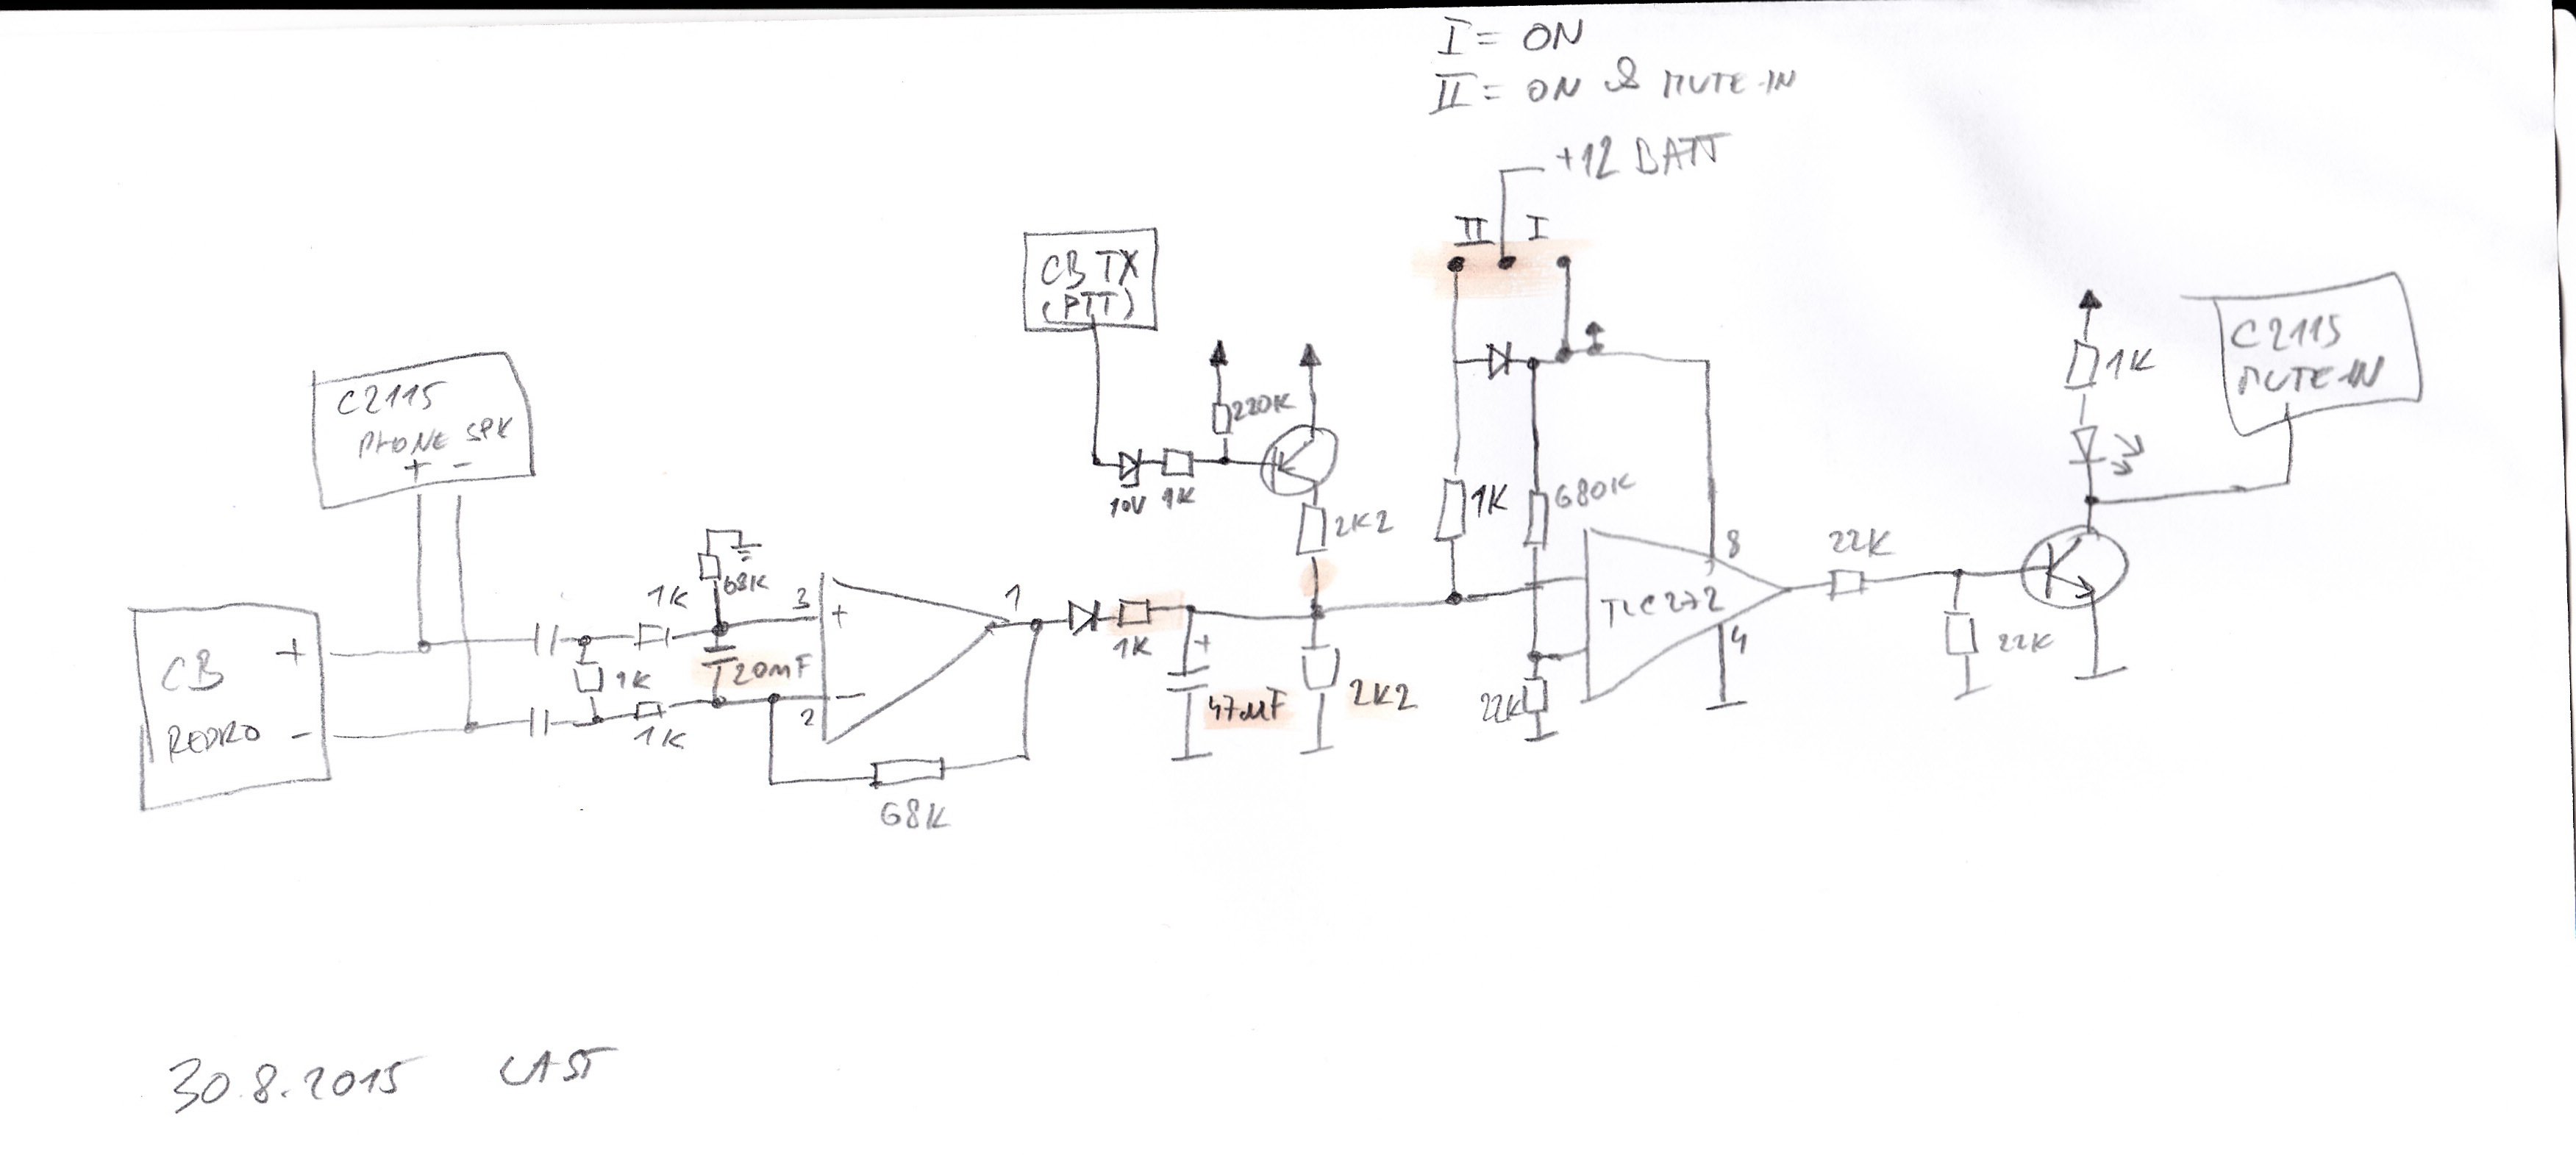 I = ON
II = ON & MUTE-IN
+12 BATT
II I
CB TX
(PTT)
220K
10V 1K
2K2
C2115
PHONE SPK
+ -
CB
REDRO
+
-
1K
68K
1K
1K
20mF
3
+
2
-
1
68K
1K
+
47µF
2K2
1K
680K
22K
TLC272
8
4
22K
22K
1K
C2115
MUTE-IN
30.8.2015 LAST